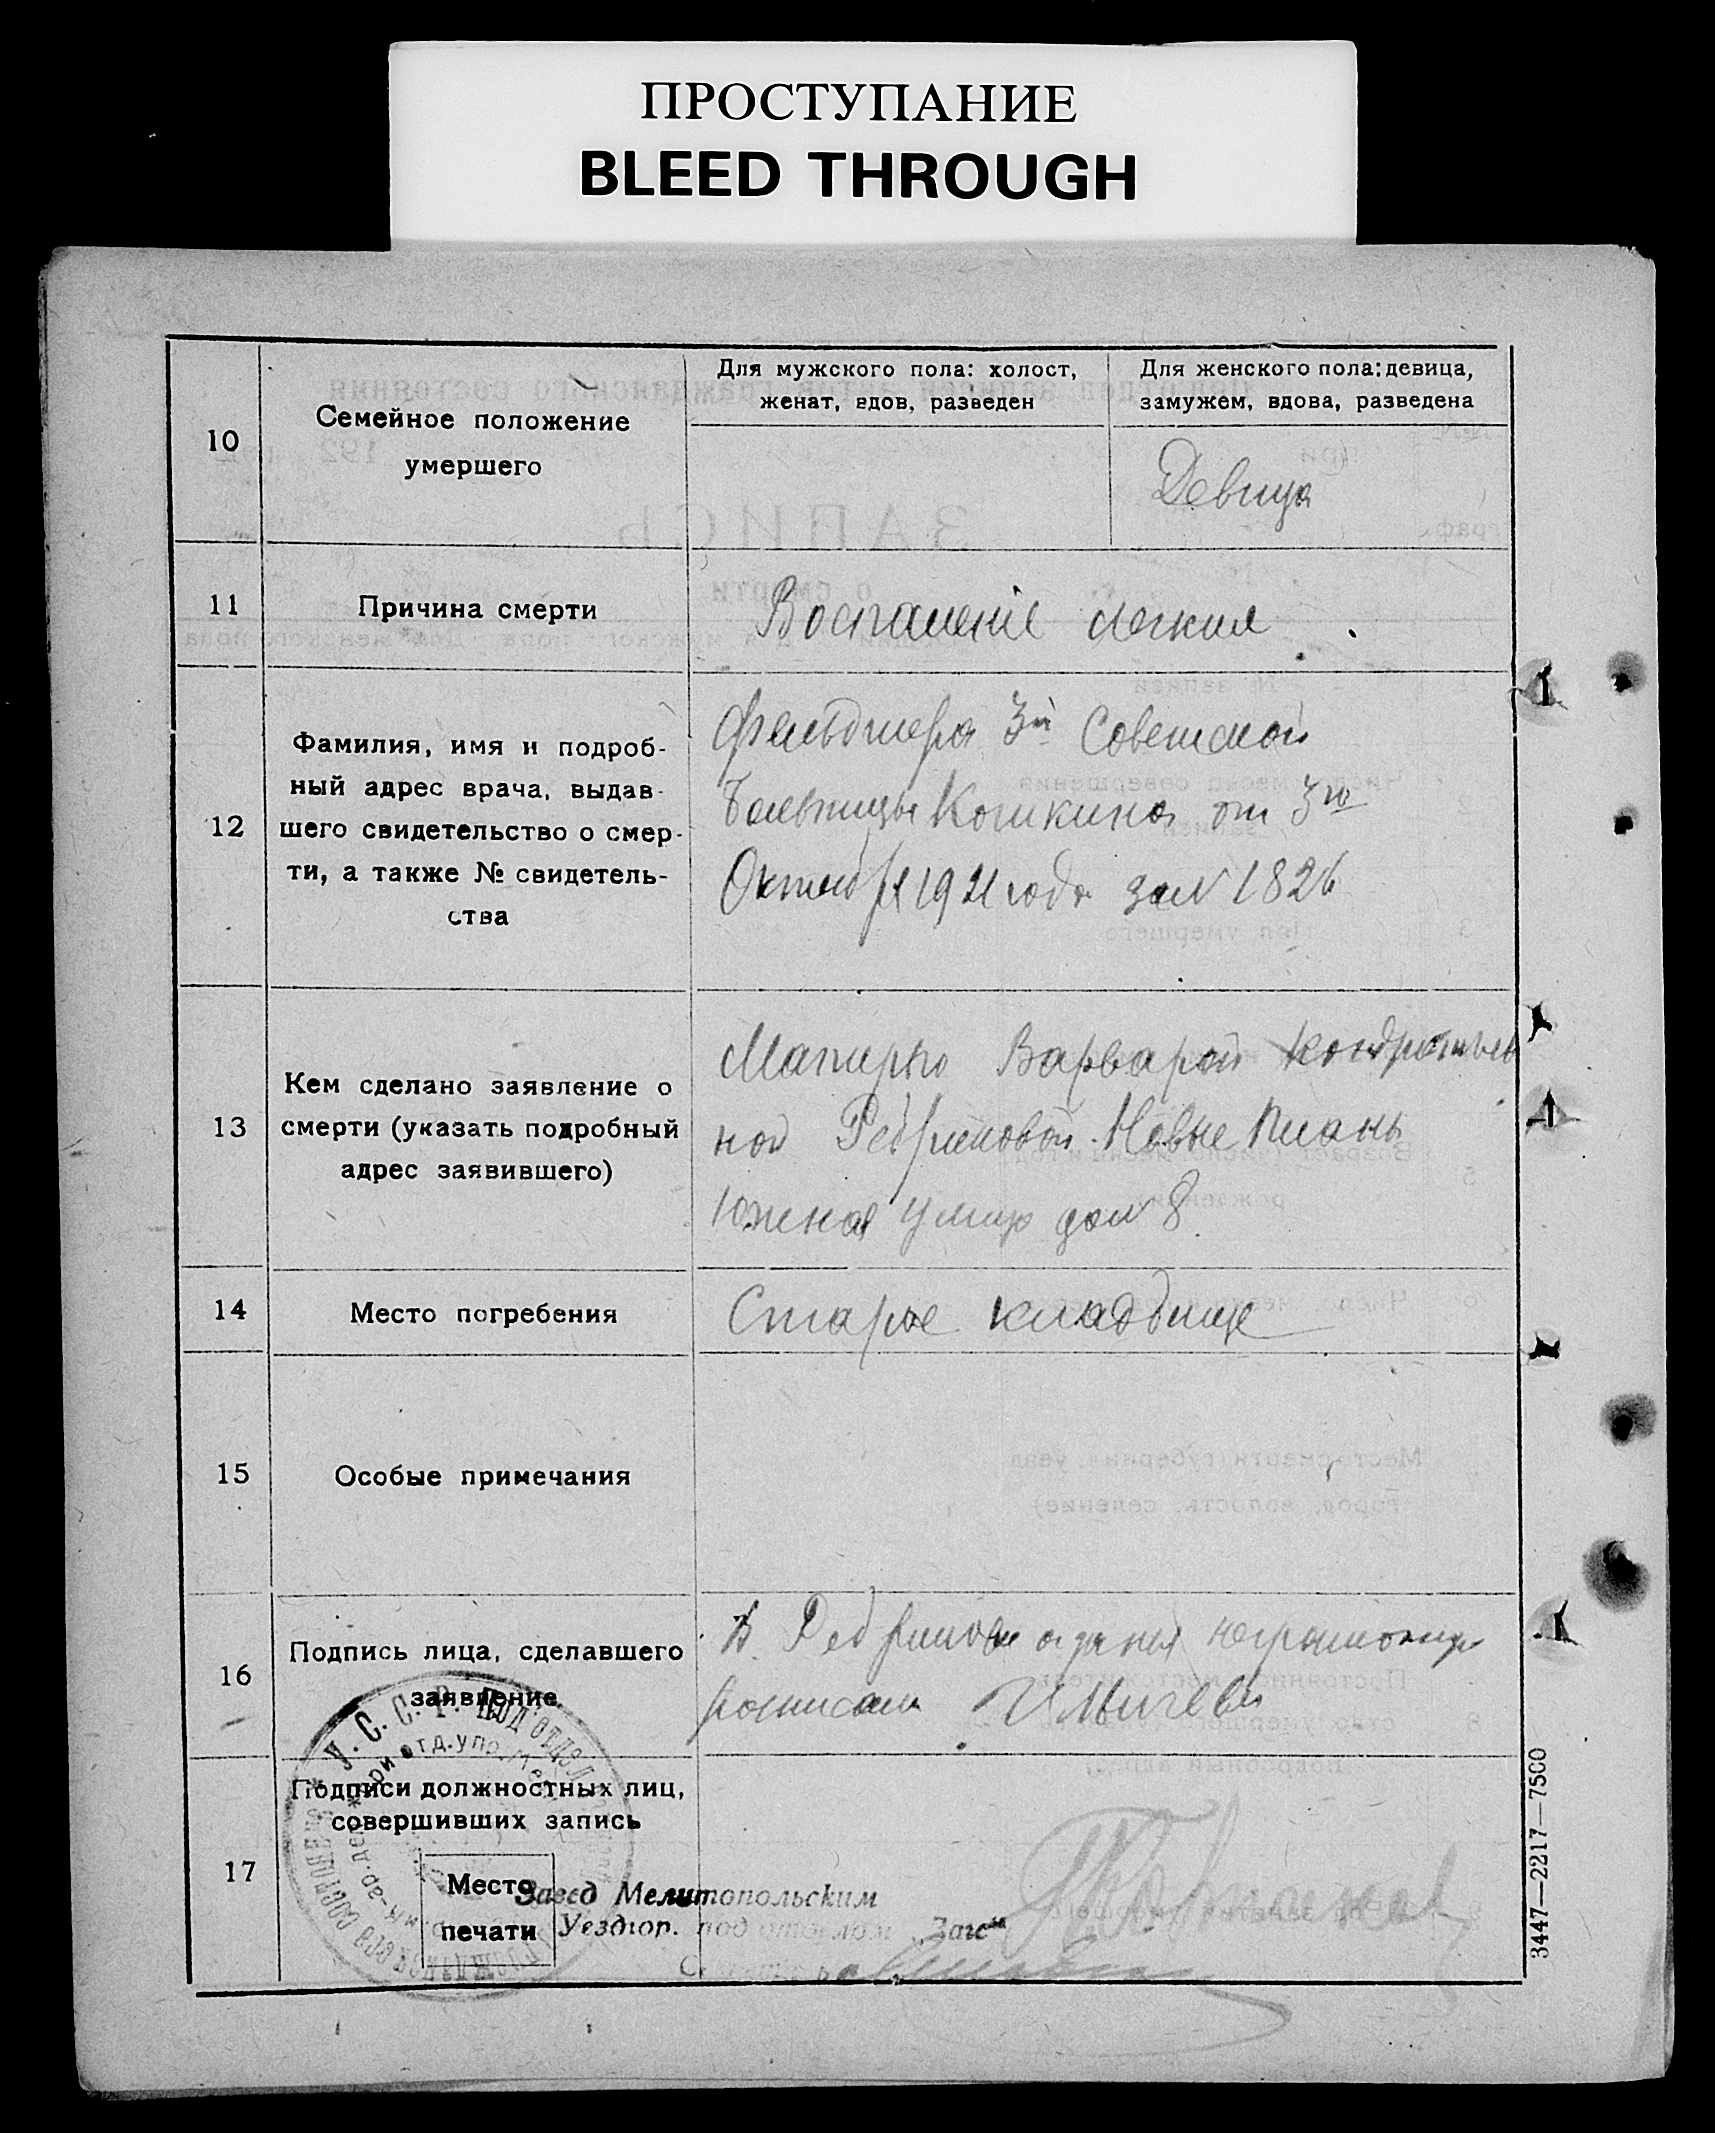 ПРОСТУПАНИЕ
BLEED THROUGH
10
Семейное положение
умершего
Для мужского пола: холост,
женат, вдов, разведен
Для женского пола: девица,
замужем, вдова, разведена
Девица
11
Причина смерти
Воспаление легких
12
Фамилия, имя и подроб-
ный адрес врача, выдав-
шего свидетельство о смер-
ти, а также № свидетель-
ства
Фельдшера 3й Советской
Больницы Кошкина от 3го
Октября 1921 года за № 1826
13
Кем сделано заявление о
смерти (указать подробный
адрес заявившего)
Матерью Варварой Кондратьев
ной Новые Планы
Южная улица дом 8
14
Место погребения
Старое кладбище
15
Особые примечания
16
Подпись лица, сделавшего
заявление
В. неграмотную
17
Подписи должностных лиц,
совершивших запись
Место
печати
У. С. С. Р. Подотдел
при отд. упр.
Завед Мелитопольским
Уездгор. подотделом „Загс"
3447—2217—7500